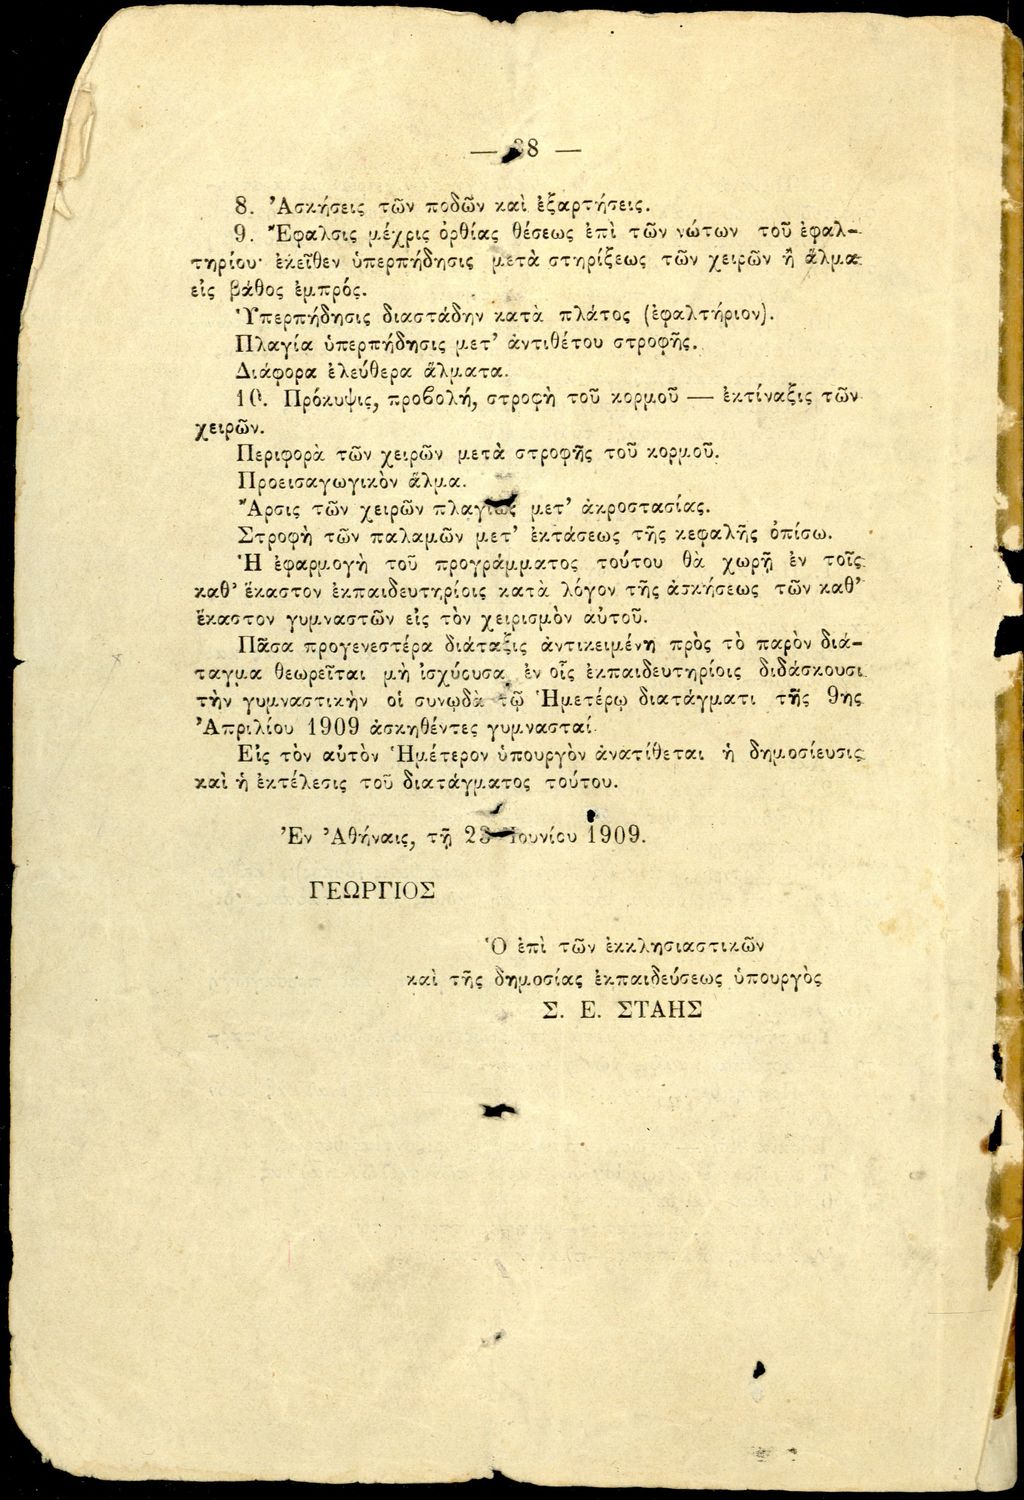 — 38 —
8. Ἀσκήσεις τῶν ποδῶν καὶ ἐξαρτήσεις.
9. Ἔφαλσις μέχρις ὀρθίας θέσεως ἐπὶ τῶν νώτων τοῦ ἐφαλ-
τηρίου· ἐκεῖθεν ὑπερπήδησις μετὰ στηρίξεως τῶν χειρῶν ἢ ἅλμα
εἰς βάθος ἐμπρός.
Ὑπερπήδησις διαστάδην κατὰ πλάτος (ἐφαλτήριον).
Πλαγία ὑπερπήδησις μετ’ ἀντιθέτου στροφῆς.
Διάφορα ἐλεύθερα ἅλματα.
10. Πρόκυψις, προβολή, στροφὴ τοῦ κορμοῦ — ἐκτίναξις τῶν
χειρῶν.
Περιφορὰ τῶν χειρῶν μετὰ στροφῆς τοῦ κορμοῦ.
Προεισαγωγικὸν ἅλμα.
Ἄρσις τῶν χειρῶν πλαγίως μετ’ ἀκροστασίας.
Στροφὴ τῶν παλαμῶν μετ’ ἐκτάσεως τῆς κεφαλῆς ὀπίσω.
Ἡ ἐφαρμογὴ τοῦ προγράμματος τούτου θὰ χωρῇ ἐν τοῖς
καθ’ ἕκαστον ἐκπαιδευτηρίοις κατὰ λόγον τῆς ἀσκήσεως τῶν καθ’
ἕκαστον γυμναστῶν εἰς τὸν χειρισμὸν αὐτοῦ.
Πᾶσα προγενεστέρα διάταξις ἀντικειμένη πρὸς τὸ παρὸν διά-
ταγμα θεωρεῖται μὴ ἰσχύουσα ἐν οἷς ἐκπαιδευτηρίοις διδάσκουσι
τὴν γυμναστικὴν οἱ συνῳδὰ τῷ Ἡμετέρῳ διατάγματι τῆς 9ης
Ἀπριλίου 1909 ἀσκηθέντες γυμνασταί.
Εἰς τὸν αὐτὸν Ἡμέτερον ὑπουργὸν ἀνατίθεται ἡ δημοσίευσις
καὶ ἡ ἐκτέλεσις τοῦ διατάγματος τούτου.
Ἐν Ἀθήναις, τῇ Ἰουνίου 1909.
ΓΕΩΡΓΙΟΣ
Ὁ ἐπὶ τῶν ἐκκλησιαστικῶν
καὶ τῆς δημοσίας ἐκπαιδεύσεως ὑπουργὸς
Σ. Ε. ΣΤΑΗΣ